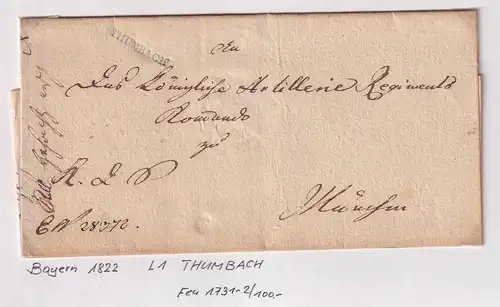 THUMBACH
An
Das Königliche Artillerie Regiments
Komando
zu
K. D. S
München
EN 28372.
Bayern 1822 L1 THUMBACH
Feu 1731-2/100.-